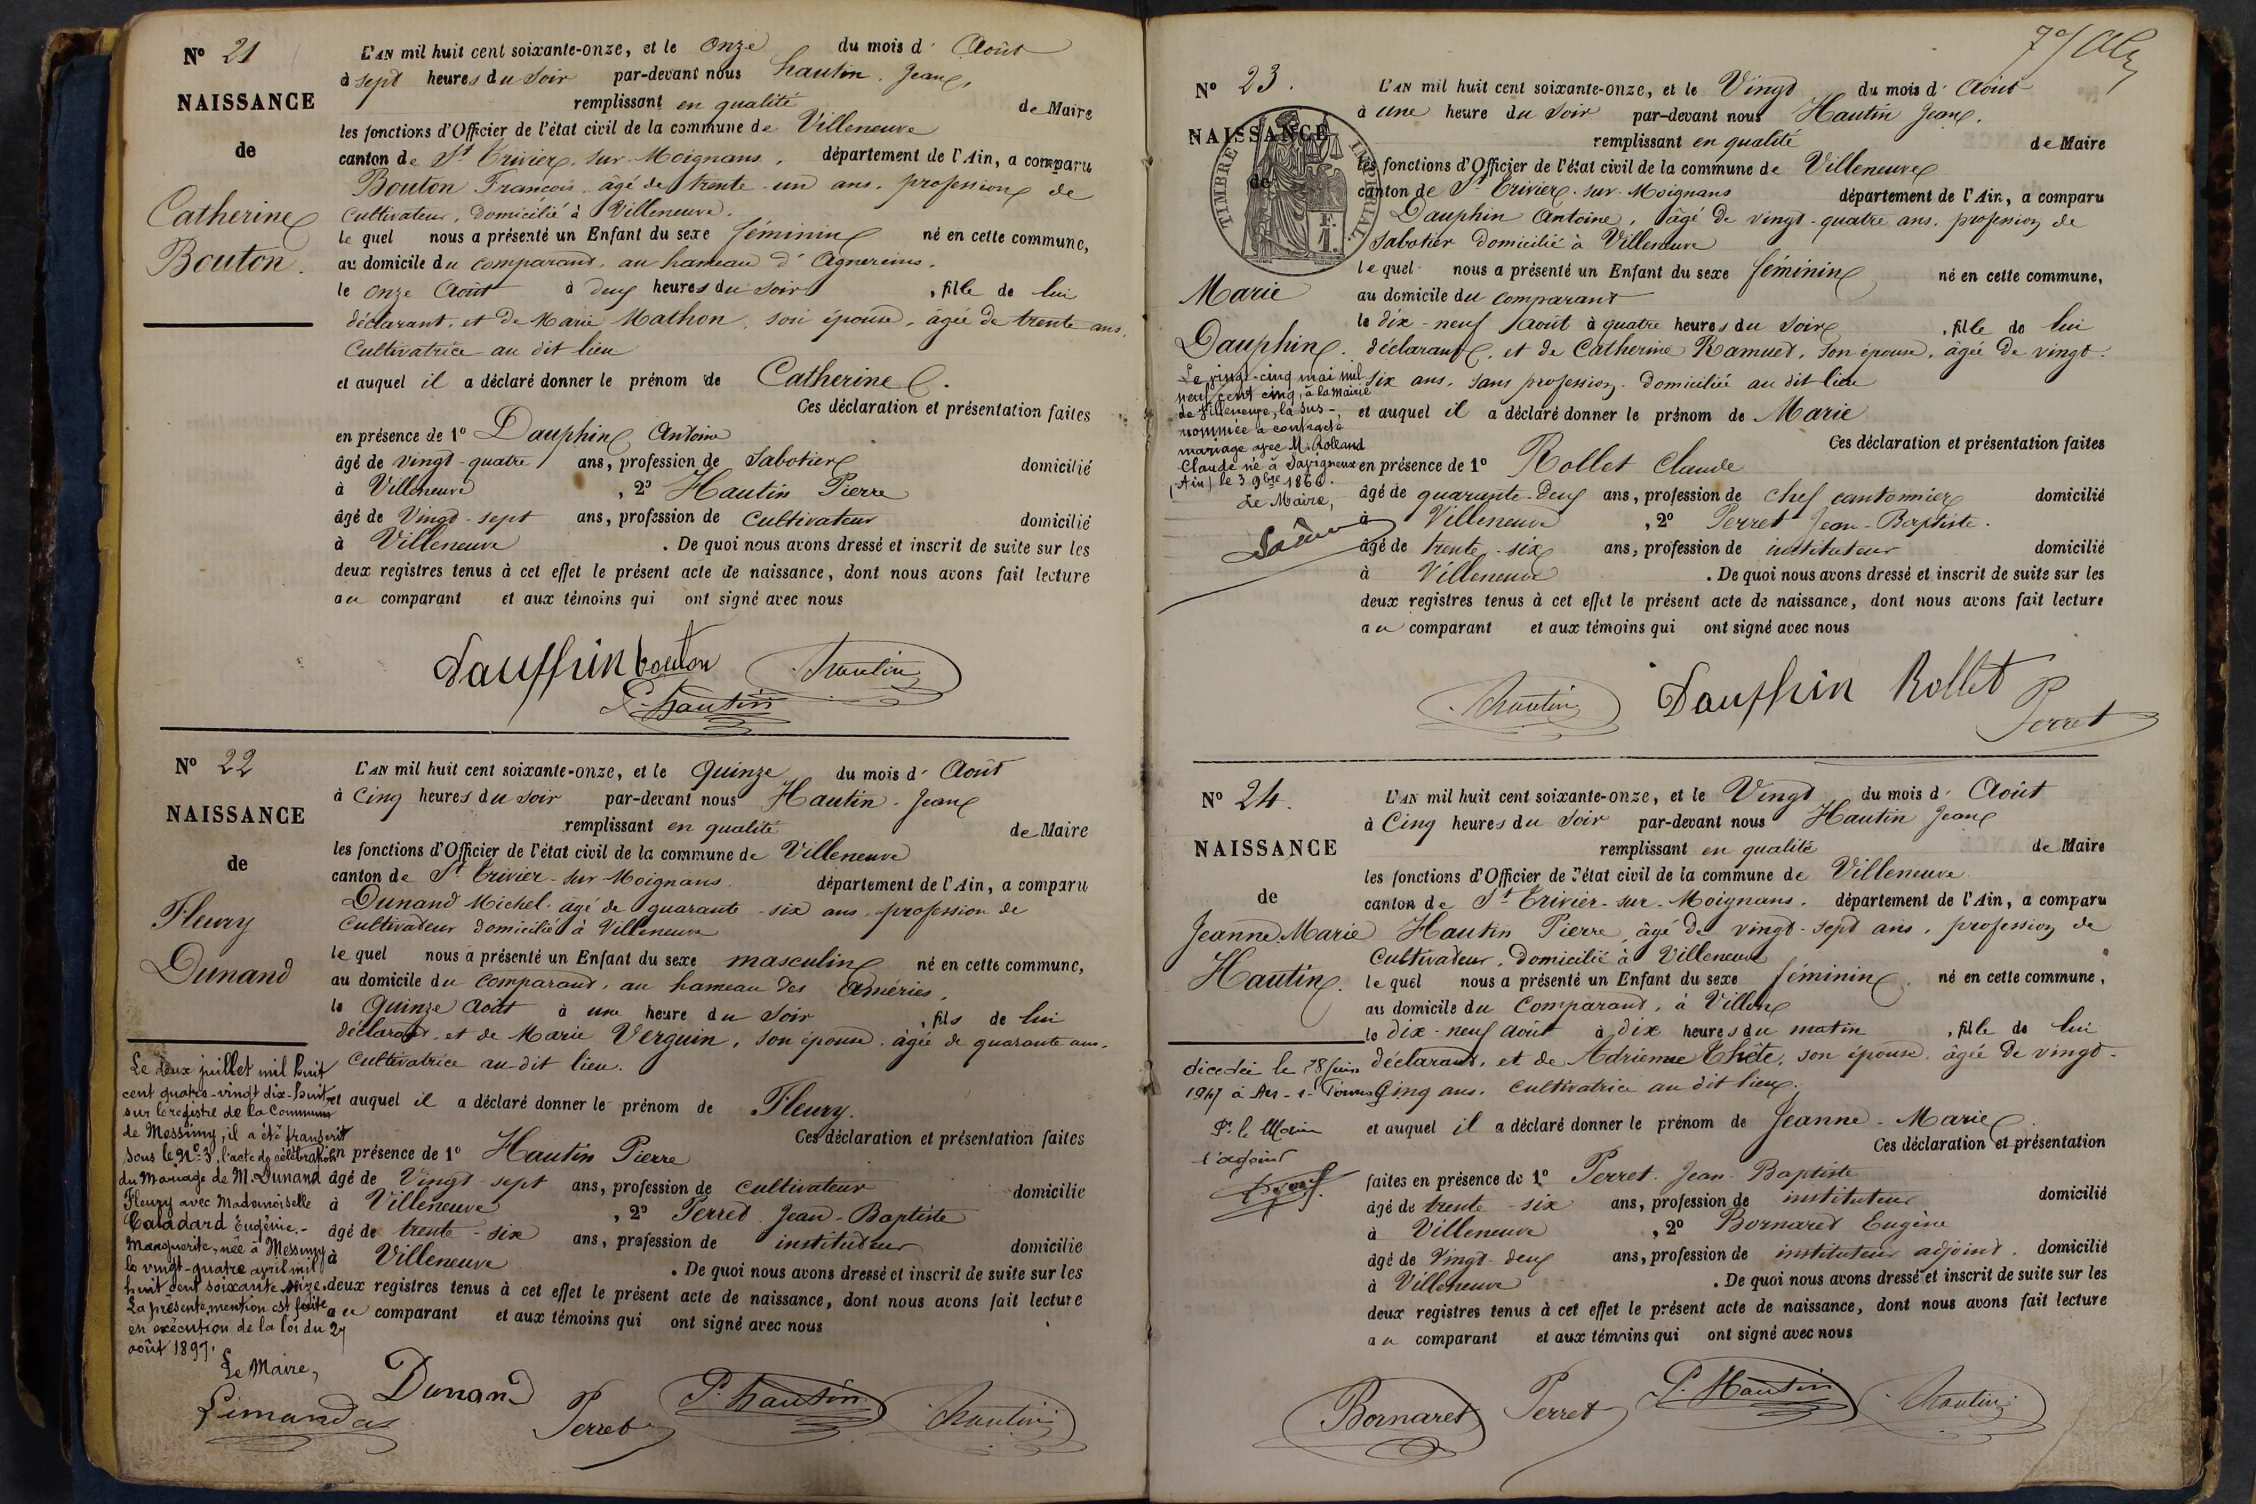 Nº 21
NAISSANCE
de
Catherine
Bouton.
L'AN mil huit cent soixante-onze, et le onze du mois d' Août
à sept heures du soir par-devant nous hautin. Jean,
remplissant en qualité de Maire
les fonctions d'Officier de l'état civil de la commune de Villeneuve
canton de St Trivier sur Moignans, département de l'Ain, a comparu
Bouton François âgé de trente-un ans, profession de
Cultivateur, domicilié à Villeneuve.
le quel nous a présenté un Enfant du sexe féminin né en cette commune,
au domicile du comparant, au hameau d'Agnereins.
le onze Août à deux heures du soir, fille de lui
déclarant, et de Marie Mathon, son épouse, âgée de trente ans,
Cultivatrice au dit lieu
et auquel il a déclaré donner le prénom de Catherine.
Ces déclaration et présentation faites
en présence de 1º Dauphin Antoine
âgé de vingt-quatre ans, profession de Sabotier domicilié
à Villeneuve, 2º Hautin Pierre
âgé de Vingt-sept ans, profession de Cultivateur domicilié
à Villeneuve. De quoi nous avons dressé et inscrit de suite sur les
deux registres tenus à cet effet le présent acte de naissance, dont nous avons fait lecture
au comparant et aux témoins qui ont signé avec nous
Dauffin bouton hautin
P. hautin
Nº 22
NAISSANCE
de
Fleury
Dunand
L'AN mil huit cent soixante-onze, et le Quinze du mois d' Août
à Cinq heures du soir par-devant nous Hautin. Jean
remplissant en qualité de Maire
les fonctions d'Officier de l'état civil de la commune de Villeneuve
canton de St Trivier-sur-Moignans. département de l'Ain, a comparu
Dunand Michel. agé de quarante-six ans, profession de
Cultivateur domicilié à Villeneuve
le quel nous a présenté un Enfant du sexe masculin né en cette commune,
au domicile du comparant, au hameau des Améries,
le Quinze Août à une heure du soir, fils de lui
déclarant, et de Marie Verguin, son épouse. âgée de quarante ans.
Cultivatrice au dit lieu.
et auquel il a déclaré donner le prénom de Fleury.
Ces déclaration et présentation faites
en présence de 1º Hautin Pierre
âgé de Vingt-sept ans, profession de cultivateur domicilié
à Villeneuve, 2º Perret Jean-Baptiste
âgé de trente-six ans, profession de instituteur domicilié
à Villeneuve. De quoi nous avons dressé et inscrit de suite sur les
deux registres tenus à cet effet le présent acte de naissance, dont nous avons fait lecture
au comparant et aux témoins qui ont signé avec nous
Le deux juillet mil huit
cent quatre-vingt dix-huit
sur le registre de la Commune
de Messimy, il a été transcrit
sous le Nº 3, l'acte de célébration
du Mariage de M. Dunand
Fleury avec Mademoiselle
Caladard Eugénie-
Marguerite, née à Messimy
le vingt-quatre avril mil
huit cent soixante seize.
La présente mention est faite
en exécution de la loi du 27
août 1897.
Le Maire,
Limandas
Dunand Perret P. hautin hautin
7e/
Nº 23.
NAISSANCE
de
TIMBRE IMPERIAL
1 F.
Marie
Dauphin.
L'AN mil huit cent soixante-onze, et le Vingt du mois d' Août
à une heure du soir par-devant nous Hautin Jean.
remplissant en qualité de Maire
les fonctions d'Officier de l'état civil de la commune de Villeneuve
canton de St Trivier-sur-Moignans département de l'Ain, a comparu
Dauphin Antoine, âgé de vingt-quatre ans, profession de
Sabotier domicilié à Villeneuve
le quel nous a présenté un Enfant du sexe féminin né en cette commune,
au domicile du comparant
le dix-neuf août à quatre heures du soir, fille de lui
déclarant, et de Catherine Ramuet, son épouse, âgée de vingt-
six ans, sans profession. domiciliée au dit lieu
et auquel il a déclaré donner le prénom de Marie
Ces déclaration et présentation faites
en présence de 1º Rollet Claude
âgé de quarante-deux ans, profession de chef cantonnier domicilié
à Villeneuve, 2º Perret Jean-Baptiste.
âgé de trente-six ans, profession de instituteur domicilié
à Villeneuve. De quoi nous avons dressé et inscrit de suite sur les
deux registres tenus à cet effet le présent acte de naissance, dont nous avons fait lecture
au comparant et aux témoins qui ont signé avec nous
Le vingt-cinq mai mil
neuf cent cinq, à la mairie
de Villeneuve, la sus-
nommée a contracté
mariage avec M. Rolland
Claude né à Savigneux
(Ain) le 3 9bre 1860.
Le Maire,
hautin Dauffin Rollet
Perret
Nº 24.
NAISSANCE
de
Jeanne Marie
Hautin.
L'AN mil huit cent soixante-onze, et le Vingt du mois d' Août
à Cinq heures du soir par-devant nous Hautin Jean
remplissant en qualité de Maire
les fonctions d'Officier de l'état civil de la commune de Villeneuve
canton de St Trivier-sur-Moignans. département de l'Ain, a comparu
Hautin Pierre, âgé de vingt-sept ans, profession de
Cultivateur, domicilié à Villeneuve
le quel nous a présenté un Enfant du sexe féminin né en cette commune,
au domicile du Comparant, à
le dix-neuf août à dix heures du matin, fille de lui
déclarant, et de Adrienne Thête, son épouse, âgée de vingt-
cinq ans, cultivatrice au dit lieu.
et auquel il a déclaré donner le prénom de Jeanne-Marie
Ces déclaration et présentation
faites en présence de 1º Perret Jean-Baptiste
âgé de trente-six ans, profession de instituteur domicilié
à Villeneuve, 2º Bornaret Eugène
âgé de Vingt-deux ans, profession de instituteur adjoint. domicilié
à Villeneuve. De quoi nous avons dressé et inscrit de suite sur les
deux registres tenus à cet effet le présent acte de naissance, dont nous avons fait lecture
au comparant et aux témoins qui ont signé avec nous
décédée le 18 juin
1947 à Ars-s-
Pr le Maire
l'adjoint
Bornaret Perret P. Hautin hautin